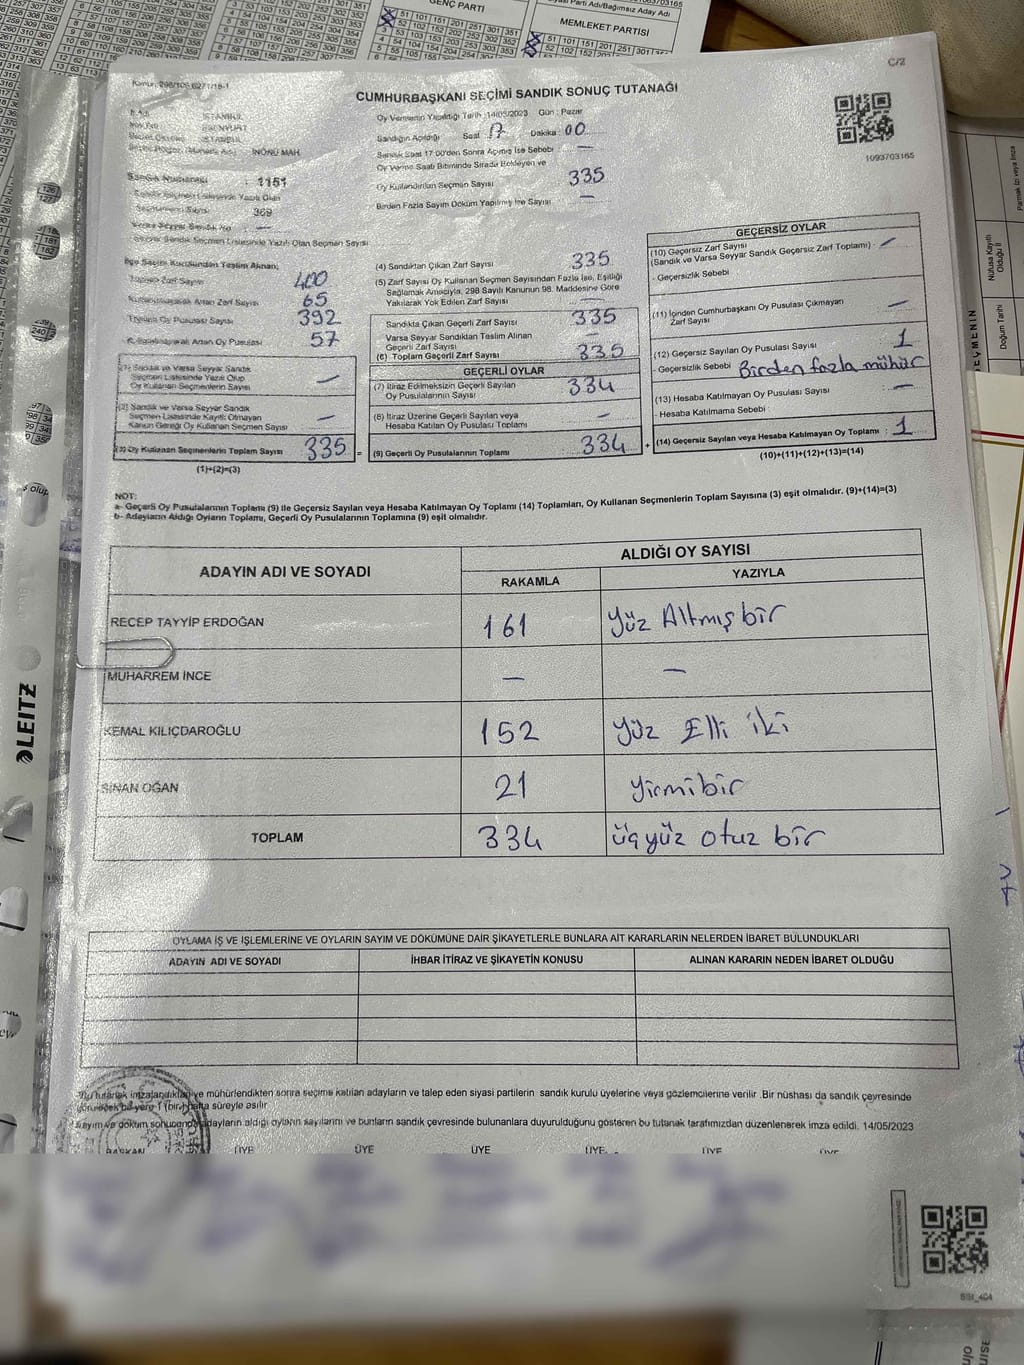 GENÇ PARTİ
MEMLEKET PARTİSİ
C/2
CUMHURBAŞKANI SEÇİMİ SANDIK SONUÇ TUTANAĞI
Oy Vermenin Yapıldığı Tarih :14/05/2023 Gün : Pazar
Sandığın Açıldığı Saat 17 Dakika 00
Sandık Saat 17:00'den Sonra Açılmış İse Sebebi —
Oy Verme Saati Bitiminde Sırada Bekleyen ve
Oy Kullandırılan Seçmen Sayısı 335
Birden Fazla Sayım Döküm Yapılmış İse Sayısı —
1093703165
İSTANBUL
ESENYURT
İSTANBUL
İNÖNÜ MAH.
Sandık Numarası : 1151
Sandık Seçmen Listesinde Yazılı Olan
Seçmen Sayısı 369
İlçe Seçim Kurulundan Teslim Alınan;
Toplam Zarf Sayısı 400
Kullanılmayarak Artan Zarf Sayısı 65
Toplam Oy Pusulası Sayısı 392
Kullanılmayarak Artan Oy Pusulası 57
(1) Sandık ve Varsa Seyyar Sandık
Seçmen Listesinde Yazılı Olup
Oy Kullanan Seçmenlerin Sayısı —
(2) Sandık ve Varsa Seyyar Sandık
Seçmen Listesinde Kayıtlı Olmayan
Kanun Gereği Oy Kullanan Seçmen Sayısı —
(3) Oy Kullanan Seçmenlerin Toplam Sayısı 335
(1)+(2)=(3)
(4) Sandıktan Çıkan Zarf Sayısı 335
(5) Zarf Sayısı Oy Kullanan Seçmen Sayısından Fazla İse, Eşitliği
Sağlamak Amacıyla, 298 Sayılı Kanunun 98. Maddesine Göre
Yakılarak Yok Edilen Zarf Sayısı —
Sandıkta Çıkan Geçerli Zarf Sayısı 335
Varsa Seyyar Sandıktan Teslim Alınan
Geçerli Zarf Sayısı
(6) Toplam Geçerli Zarf Sayısı 335
GEÇERLİ OYLAR
(7) İtiraz Edilmeksizin Geçerli Sayılan
Oy Pusulalarının Sayısı 334
(8) İtiraz Üzerine Geçerli Sayılan veya
Hesaba Katılan Oy Pusulası Toplamı —
(9) Geçerli Oy Pusulalarının Toplamı 334
GEÇERSİZ OYLAR
(10) Geçersiz Zarf Sayısı
(Sandık ve Varsa Seyyar Sandık Geçersiz Zarf Toplamı) : —
- Geçersizlik Sebebi
(11) İçinden Cumhurbaşkanı Oy Pusulası Çıkmayan
Zarf Sayısı —
(12) Geçersiz Sayılan Oy Pusulası Sayısı 1
- Geçersizlik Sebebi Birden fazla mühür
(13) Hesaba Katılmayan Oy Pusulası Sayısı : —
- Hesaba Katılmama Sebebi :
(14) Geçersiz Sayılan veya Hesaba Katılmayan Oy Toplamı : 1
(10)+(11)+(12)+(13)=(14)
NOT:
a- Geçerli Oy Pusulalarının Toplamı (9) ile Geçersiz Sayılan veya Hesaba Katılmayan Oy Toplamı (14) Toplamları, Oy Kullanan Seçmenlerin Toplam Sayısına (3) eşit olmalıdır. (9)+(14)=(3)
b- Adayların Aldığı Oyların Toplamı, Geçerli Oy Pusulalarının Toplamına (9) eşit olmalıdır.
ADAYIN ADI VE SOYADI
ALDIĞI OY SAYISI
RAKAMLA YAZIYLA
RECEP TAYYİP ERDOĞAN 161 Yüz Altmış bir
MUHARREM İNCE — —
KEMAL KILIÇDAROĞLU 152 Yüz Elli iki
SİNAN OĞAN 21 Yirmibir
TOPLAM 334 üçyüz otuz bir
OYLAMA İŞ VE İŞLEMLERİNE VE OYLARIN SAYIM VE DÖKÜMÜNE DAİR ŞİKAYETLERLE BUNLARA AİT KARARLARIN NELERDEN İBARET BULUNDUKLARI
ADAYIN ADI VE SOYADI İHBAR İTİRAZ VE ŞİKAYETİN KONUSU ALINAN KARARIN NEDEN İBARET OLDUĞU
Bu tutanak imzalandıktan ve mühürlendikten sonra seçime katılan adayların ve talep eden siyasi partilerin sandık kurulu üyelerine veya gözlemcilerine verilir. Bir nüshası da sandık çevresinde
görülecek bir yere 1 (bir) hafta süreyle asılır.
Sayım ve döküm sonucunda adayların aldığı oyların sayılarını ve bunların sandık çevresinde bulunanlara duyurulduğunu gösteren bu tutanak tarafımızdan düzenlenerek imza edildi. 14/05/2023
BAŞKAN ÜYE ÜYE ÜYE ÜYE ÜYE ÜYE
LEITZ